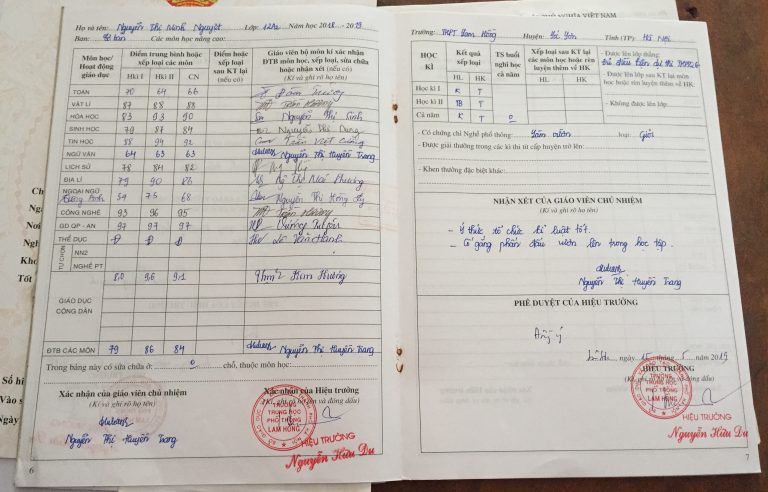 Họ và tên: Nguyễn Thị Minh Nguyệt Lớp: 12A2 Năm học 2018 - 2019
Ban: Cơ bản Các môn học nâng cao:
Môn học/ Hoạt động giáo dục
Điểm trung bình hoặc xếp loại các môn
Hk I Hk II CN
Điểm hoặc xếp loại sau KT lại (nếu có)
Giáo viên bộ môn kí xác nhận ĐTB môn học, xếp loại, sửa chữa hoặc nhận xét (nếu có)
(Kí và ghi rõ họ tên)
TOÁN 70 64 66
VẬT LÍ 87 88 88
HÓA HỌC 83 93 90 Nguyễn Thị
SINH HỌC 79 87 84 Nguyễn Thị Dung
TIN HỌC 88 94 92 Trần Việt Cường
NGỮ VĂN 64 63 63 Nguyễn Thị Huyền Trang
LỊCH SỬ 78 84 82
ĐỊA LÍ 79 90 86
NGOẠI NGỮ Tiếng Anh 54 75 68 Nguyễn Thị Hồng
CÔNG NGHỆ 93 96 95
GD QP - AN 97 97 97
THỂ DỤC Đ Đ Đ
TỰ CHỌN
NN2
NGHỀ PT
GIÁO DỤC CÔNG DÂN 8,0 9,6 9,1 Kim Hương
ĐTB CÁC MÔN 79 86 84 Nguyễn Thị Huyền Trang
Trong bảng này có sửa chữa ở: 0 chỗ, thuộc môn học:
Xác nhận của giáo viên chủ nhiệm
(Kí và ghi rõ họ tên)
Nguyễn Thị Huyền Trang
Xác nhận của Hiệu trưởng
(Kí, ghi rõ họ tên và đóng dấu)
TRƯỜNG
TRUNG HỌC
PHỔ THÔNG
LAM HỒNG
HIỆU TRƯỞNG
Nguyễn Hữu Du
6
Trường: THPT Lam Hồng Huyện: Tỉnh (TP): Hà Nội
HỌC KÌ
Kết quả xếp loại
HL HK
TS buổi nghỉ học cả năm
Xếp loại sau KT lại các môn học hoặc rèn luyện thêm về HK
HL HK
- Được lên lớp thẳng:
Đủ điều kiện dự thi THPTQG
- Được lên lớp sau KT lại môn học hoặc rèn luyện thêm về HK
- Không được lên lớp:
Học kì I K T
Học kì II TB T
Cả năm K T 0
- Có chứng chỉ Nghề phổ thông: Làm vườn loại: Giỏi
- Được giải thưởng trong các kì thi từ cấp huyện trở lên:
- Khen thưởng đặc biệt khác:
NHẬN XÉT CỦA GIÁO VIÊN CHỦ NHIỆM
(Kí và ghi rõ họ tên)
- Ý thức tổ chức kỉ luật tốt.
- Cố gắng phấn đấu vươn lên trong học tập.
Nguyễn Thị Huyền Trang
PHÊ DUYỆT CỦA HIỆU TRƯỞNG
Đồng ý
ngày tháng 5 năm 2019
HIỆU TRƯỞNG
(Kí, ghi rõ họ tên và đóng dấu)
TRƯỜNG
TRUNG HỌC
PHỔ THÔNG
LAM HỒNG
HIỆU TRƯỞNG
Nguyễn Hữu Du
7